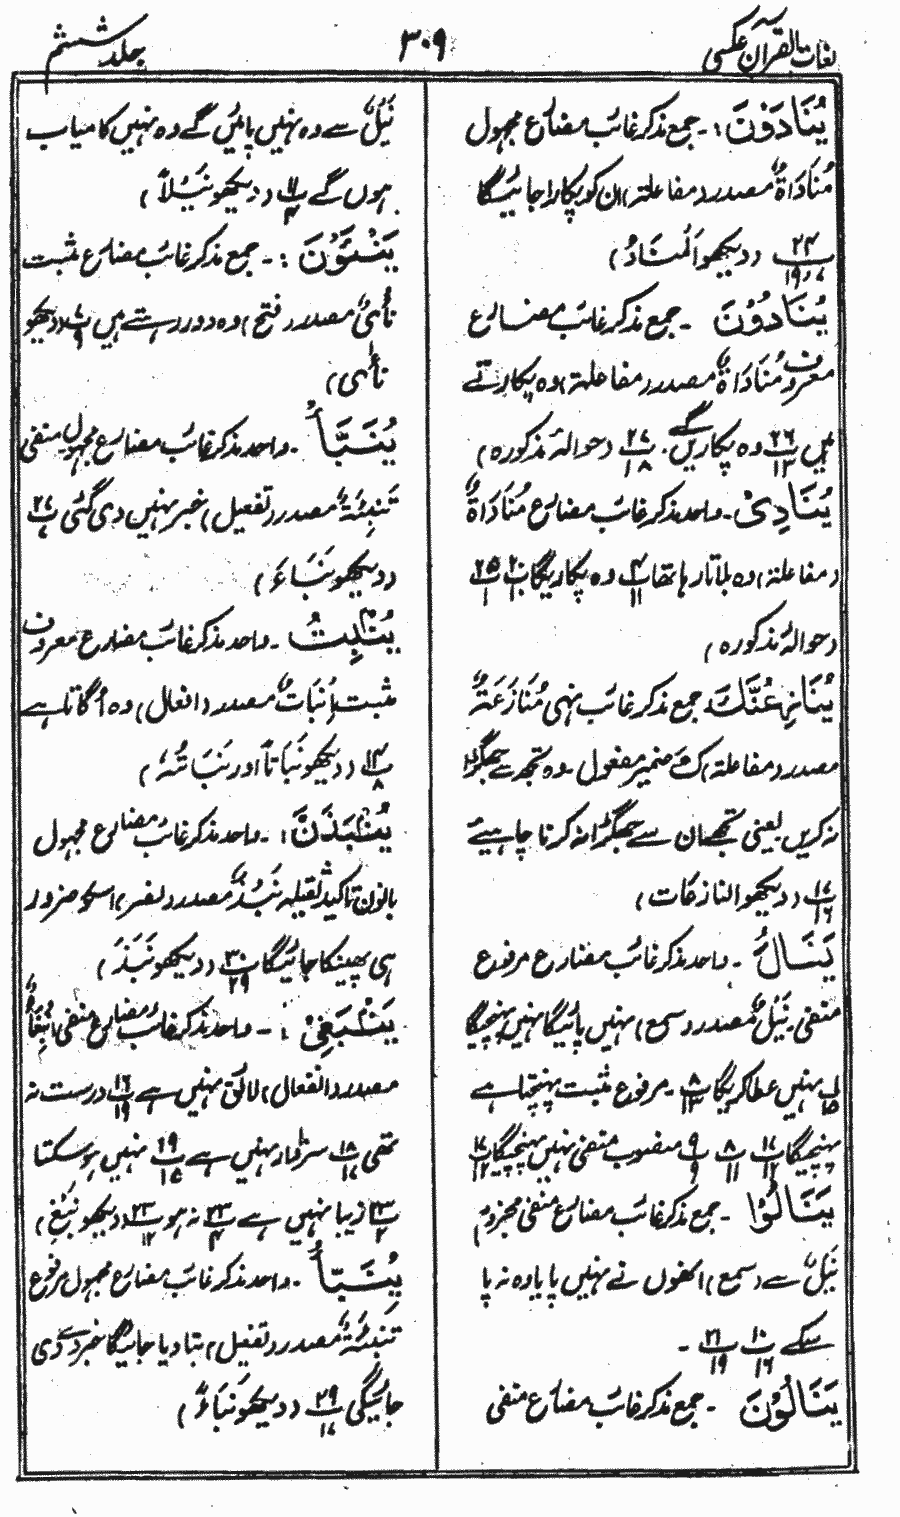 لغات القرآن عکسی
۳۰۹
جلد ششم
یُنَادَوْنَ :- جمع مذکر غائب مضارع مجہول
مُنَادَاۃٌ مصدر (مفاعلۃ) ان کو پکارا جائیگا
۲۴ (دیکھو اَلْمُنَادُ)
یُنَادُوْنَ - جمع مذکر غائب مضارع
معروف مُنَادَاۃٌ مصدر (مفاعلۃ) وہ پکارتے
ہیں ۲۶/۱۳ وہ پکاریں گے ۲۷/۱۸ (حوالۂ مذکورہ)
یُنَادِیْ - واحد مذکر غائب مضارع مُنَادَاۃٌ
(مفاعلۃ) وہ بلاتا رہا تھا ۴/۱۱ وہ پکاریگا ۲۰ ۲۵
(حوالۂ مذکورہ)
یُنَازِعُنَّكَ جمع مذکر غائب نہی مُنَازَعَۃٌ
مصدر (مفاعلۃ) كَ ضمیر مفعول - وہ تجھ سے جھگڑا
نہ کریں یعنی تجھے ان سے جھگڑا نہ کرنا چاہیئے
۱۷/۱۶ (دیکھو النازعات)
یَنَالُ - واحد مذکر غائب مضارع مرفوع
منفی - نَیْلٌ مصدر (سمع) نہیں پائیگا نہیں پہنچیگا
نہیں عطا کریگا ۸/۱۳ - مرفوع مثبت پہنچتا ہے
پہنچیگا ۱۷/۱۲ ۸/۱۱ ۹/۹ منصوب منفی نہیں پہنچیگا ۱۷/۱۲
یَنَالُوْا - جمع مذکر غائب مضارع منفی مجزوم
نَیْلٌ سے (سمع) انھوں نے نہیں پایا وہ نہ پا
سکے ۱۰/۱۶ ۲۱/۱۹ -
یَنَالُوْنَ - جمع مذکر غائب مضارع منفی
نَیْلٌ سے وہ نہیں پائیں گے وہ نہیں کامیاب
ہوں گے ۱۱/۴ (دیکھو نَیْلاً)
یَنْئَوْنَ :- جمع مذکر غائب مضارع مثبت
نَأْیٌ مصدر (فتح) وہ دور رہتے ہیں ۷/۹ (دیکھو
نَأٰی)
یُنَبَّأُ - واحد مذکر غائب مضارع مجہول منفی
تَنْبِئَۃٌ مصدر (تفعیل) خبر نہیں دی گئی ۲۷
(دیکھو نَبَاءَ)
یُنْبِتُ - واحد مذکر غائب مضارع معروف
مثبت اِنْبَاتٌ مصدر (افعال) وہ اُگاتا ہے
۱۴/۸ (دیکھو نَبَاتًا اور نَبَاتُہٗ)
یُنْبَذَنَّ :- واحد مذکر غائب مضارع مجہول
بانون تاکید ثقیلہ نَبْذٌ مصدر (نصر) اسکو ضرور
ہی پھینکا جائیگا ۳۰/۲۹ (دیکھو نَبَذَ)
یَنْبَغِیْ :- واحد مذکر غائب مضارع منفی اِنْبِغَاءٌ
مصدر (انفعال) لائق نہیں ہے ۱۶/۱۹ درست نہ
تھی ۱۸/۱۷ سزاوار نہیں ہے ۱۹/۱۵ نہیں ہو سکتا
۲۳/۲ زیبا نہیں ہے ۲۳/۴ نہ ہو ۲۳/۱۲ (دیکھو نَبْغِ)
یُنَبَّأُ - واحد مذکر غائب مضارع مجہول مرفوع
تَنْبِئَۃٌ مصدر (تفعیل) بتا دیا جائیگا خبر دے دی
جائیگی ۲۹/۱۷ (دیکھو نَبَاءٌ)